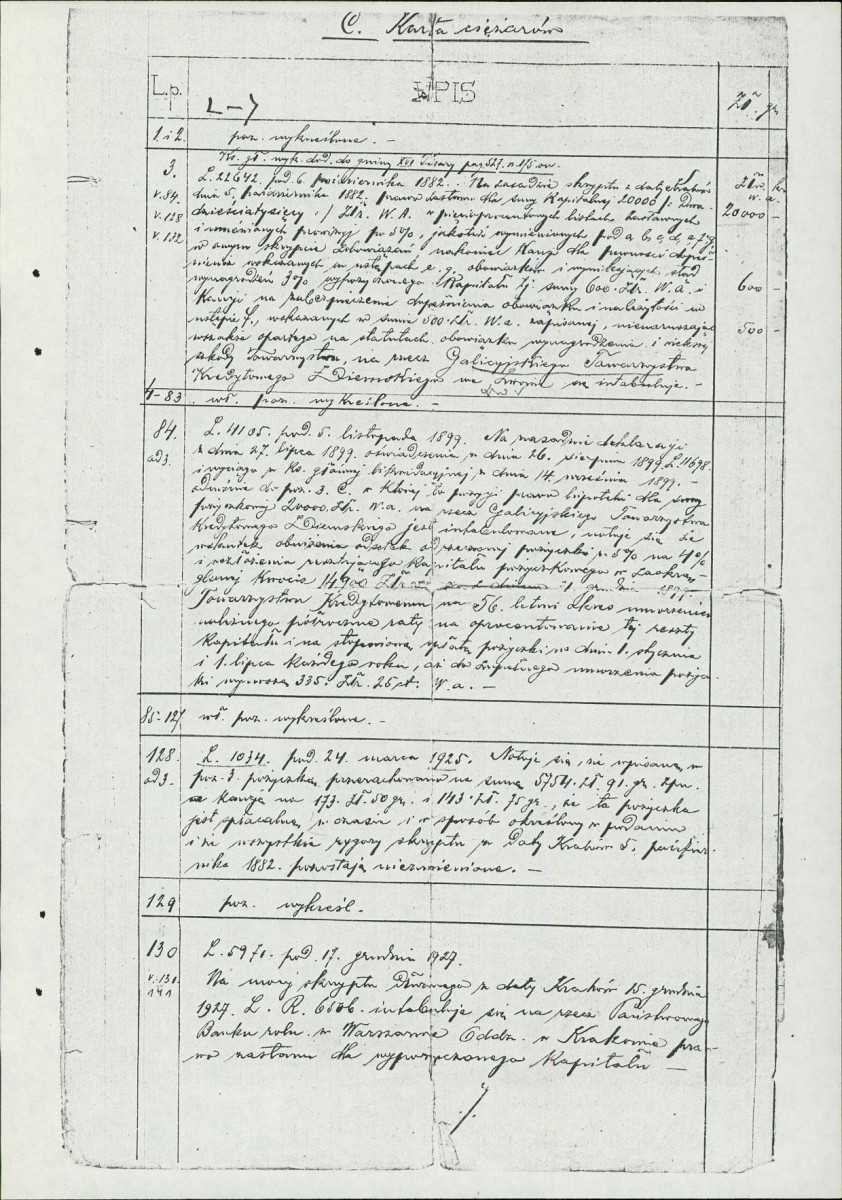 C. Karta ciężarów
L.p. WPIS Zł. gr.
1. i 2. poz. wykreślone. –
Ks. gł. wyk. dod. do gminy XVI Pisary pag 527. n. 1/5 ow.
3. L. 22642. pod. 6. października 1882. Na zasadzie skryptu z daty Kraków Złr. kr.
v. 84. dnia 5. października 1882. prawo zastawu dla sumy Kapitalnej 20000 /: Dwa- w. a.
v. 128 dzieścia tysięcy :/ Złr. W. A. w pięcioprocentowych listach zastawnych 20000 –
v. 172 i umówionych prowizyj po 5%, jakoteż wymienionych pod a, b, c, d,
w onym skrypcie zobowiązań nakoniec Kaucyę dla pewności
wskazanych w ustępach e. g. obowiązków i wynikających stąd
wynagrodzeń 3% wypożyczonego Kapitału tj. sumy 600 Złr. W. a. i 600 –
Kaucyi na zabezpieczenie dopełnienia obowiązku i należytości w
ustępie f., wskazanych w sumie 500 złr. W. a. zapisanej, nienaruszając 500 –
wszakże opartego na statutach, obowiązku wynagrodzenia i większej
szkody Towarzystwu, na rzecz Galicyjskiego Towarzystwa
Kredytowego Ziemskiego we Lwowie się intabuluje. –
4–83 wś. poz. wykreślone. –
84. L. 4105. pod. 5. listopada 1899. Na zasadzie deklaracyi
ad 3. z dnia 27. lipca 1899. oświadczenia z dnia 26. sierpnia 1899. L. 11698.
i wyciągu z ks. głównej likwidacyjnej z dnia 14. września 1899. –
odnośnie do poz. 3. C. w której to pozycyi prawo hipoteki dla sumy
pożyczkowej 20000. złr. W. a. na rzecz Galicyjskiego Towarzystwa
Kredytowego Ziemskiego jest intabulowane, notuje się że
wskutek obniżenia odsetek od rzeczonej pożyczki z 5% na 4%
i rozłożenia resztującego Kapitału pożyczkowego w zaokrą-
glonej kwocie 14900 Złr. z dniem 1 grudnia
Towarzystwu Kredytowemu na 56. letni okres umorzenia
należnego półroczne raty na oprocentowanie tej reszty
Kapitału i na stopniową spłatę pożyczki w dniu 1. stycznia
i 1. lipca każdego roku, aż do zupełnego umorzenia pożycz-
ki wynoszą 335. złr. 25 ct. W. a. –
85–127 wś. poz. wykreślone. –
128. L. 1034. pod. 24. marca 1925. Notuje się, że wpisana w
ad 3. poz. 3. pożyczka przerachowana na sumę 5754. zł. 91. gr. zpn.
a kaucja na 173. zł. 50 gr. i 143. zł. 75 gr., że ta pożyczka
jest spłacalną w czasie i w sposób określony w podaniu
i że wszystkie rygory skryptu z daty Kraków 5. paździer-
nika 1882. pozostają niezmienione. –
129 poz. wykreśl.
130 L. 5971. pod. 17. grudnia 1927.
v. 131. Na mocy skryptu dłużnego z daty Kraków 15. grudnia
141 1927. L. R. 6506. intabuluje się na rzecz Państwowego
Banku roln. w Warszawie Oddz. w Krakowie pra-
wo zastawu dla wypożyczonego Kapitału –